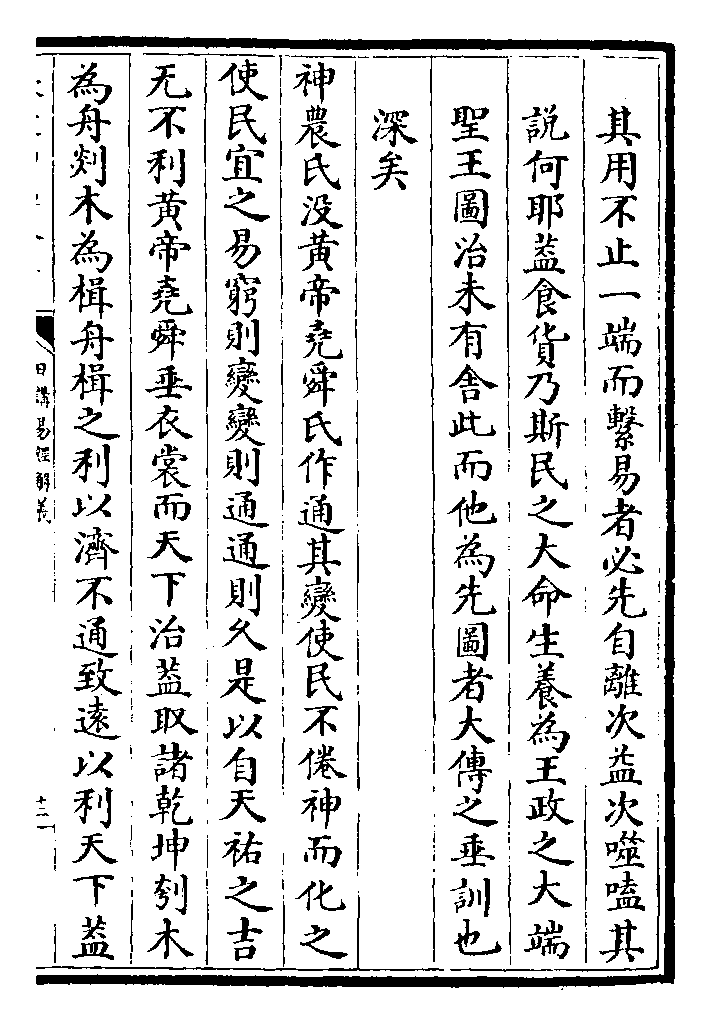 其用不止一端而繫易者必先自離次益次噬嗑其
説何耶葢食貨乃斯民之大命生養為王政之大端
聖王圖治未有舍此而他為先圖者大傳之垂訓也
深矣
神農氏没黃帝堯舜氏作通其變使民不倦神而化之
使民宜之易窮則變變則通通則久是以自天祐之吉
无不利黃帝堯舜垂衣裳而天下治葢取諸乾坤刳木
為舟剡木為楫舟楫之利以濟不通致遠以利天下葢
日講易經解義
十二